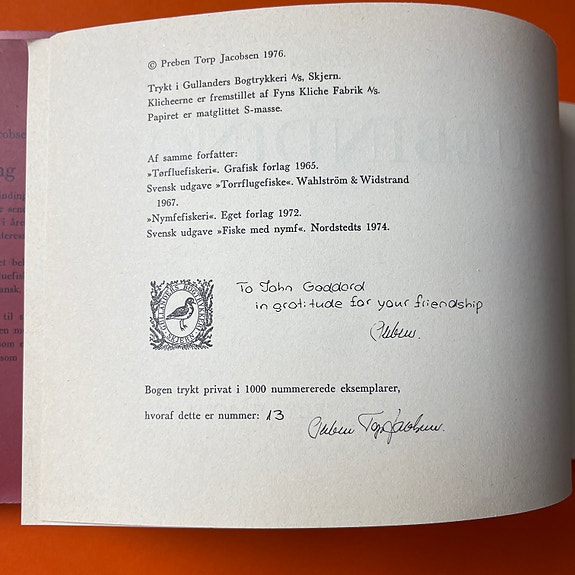 © Preben Torp Jacobsen 1976.
Trykt i Gullanders Bogtrykkeri A/s, Skjern.
Klicheerne er fremstillet af Fyns Kliche Fabrik A/s.
Papiret er matglittet S-masse.
Af samme forfatter:
»Tørfluefiskeri«. Grafisk forlag 1965.
Svensk udgave »Torrflugefiske«. Wahlström & Widstrand
1967.
»Nymfefiskeri«. Eget forlag 1972.
Svensk udgave »Fiske med nymf«. Nordstedts 1974.
To John Goddard
in gratitude for your friendship
Preben.
GULLANDERS BOGTRYKKERI
SKJERN
Bogen trykt privat i 1000 nummererede eksemplarer,
hvoraf dette er nummer: 13
Preben Torp Jacobsen.